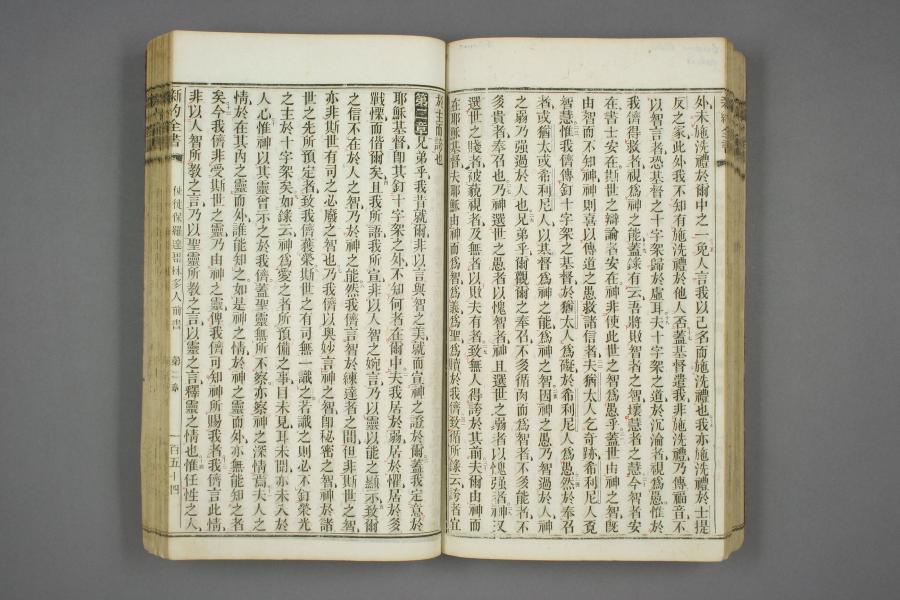 外未施洗禮於爾中之一免人言我以己名而施洗禮也我亦施洗禮於士提
反之家此外我不知有施洗禮於他人否蓋基督遣我非施洗禮乃傳福音不
以智言者恐基督之十字架歸於虛耳夫十字架之道於沉淪者視爲愚惟於
我儕得救者視爲神之能蓋錄有云吾將敗智者之智壞慧者之慧今智者安
在書士安在斯世之辯論者安在神非使此世之智爲愚乎蓋世由神之智旣
由智而不知神神則喜以傳道之愚救諸信者夫猶太人乞奇跡希利尼人覔
智慧惟我儕傳釘十字架之基督於猶太人爲礙於希利尼人爲愚然於奉召
者或猶太或希利尼人以基督爲神之能爲神之智因神之愚乃智過於人神
之弱乃强過於人也兄弟乎爾觀爾之奉召不多循肉而爲智者不多能者不
多貴者奉召也乃神選世之愚者以愧智者神且選世之弱者以愧强者神又
選世之賤者被藐視者及無者以敗夫有者致無人得誇於其前夫爾由神而
在耶穌基督夫耶穌由神而爲智爲義爲聖爲贖於我儕致循所錄云誇者宜
於主而誇也
第二章兄弟乎我昔就爾非以言與智之美就而宣神之證於爾蓋我定意於
耶穌基督卽其釘十字架之外不知何者在爾中夫我居於弱居於懼居於多
戰慄而偕爾矣且我所語我所宣非以人智之婉言乃以靈以能之顯示致爾
之信不在於人之智乃於神之能然我儕言智於練達者之間但非斯世之智
亦非斯世有司之必廢之智也乃我儕以奧妙言神之智卽秘密之智神於諸
世之先所預定者致我儕獲榮斯世之有司無一識之若識之則必不釘榮光
之主於十字架矣如錄云神爲愛之者所預備之事目未見耳未聞亦未入於
人心惟神以其靈曾示之於我儕蓋聖靈無所不察亦察神之深情焉夫人之
情於在其內之靈而外誰能知之如是神之情於神之靈而外亦無能知之者
矣今我儕非受斯世之靈乃由神之靈俾我儕可知神所賜我者我儕言此情
非以人智所敎之言乃以聖靈所敎之言以靈之言釋靈之情也惟任性之人
新約全書
使徒保羅達哥林多人前書
第二章
一百五十四